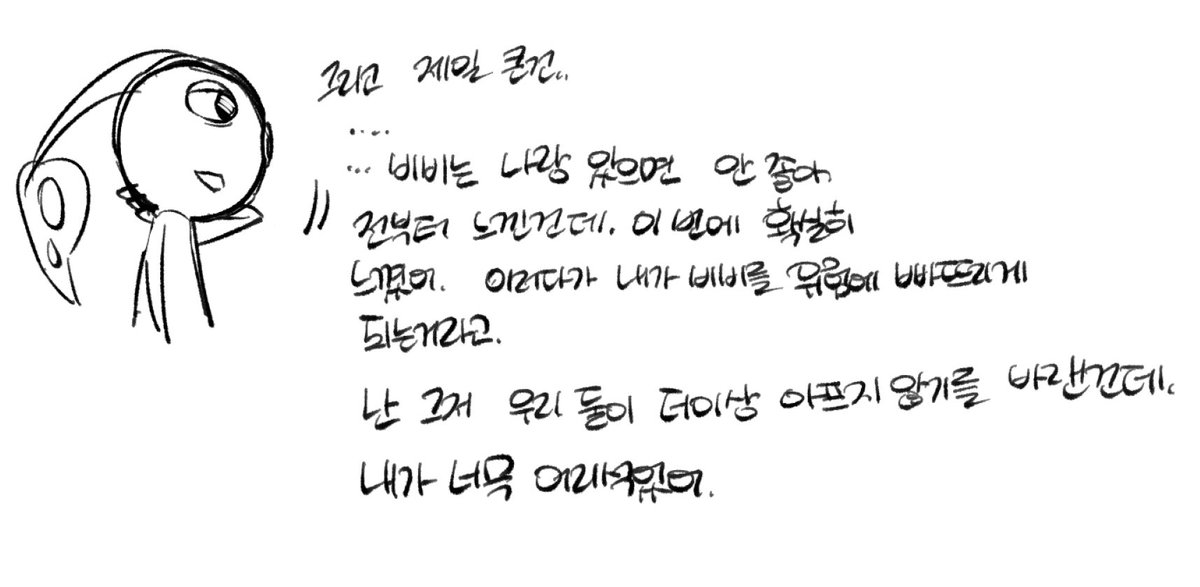 그리고 제일 큰건..
....
... 비비는 나랑 있으면 안 좋아.
전부터 느낀건데. 이번에 확실히
느꼈어. 이러다가 내가 비비를 위험에 빠뜨리게
되는거라고.
난 그저 우리 둘이 더이상 아프지 않기를 바랜건데.
내가 너무 어리석었어.